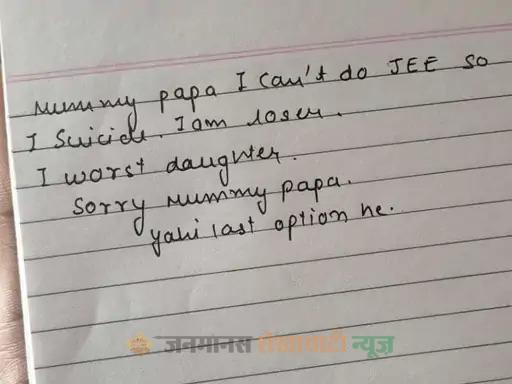 Mummy papa I can't do JEE so
I Suicide. I am loser.
I worst daughter.
Sorry Mummy papa.
yahi last option he.
जनमानस शेखावाटी न्यूज़